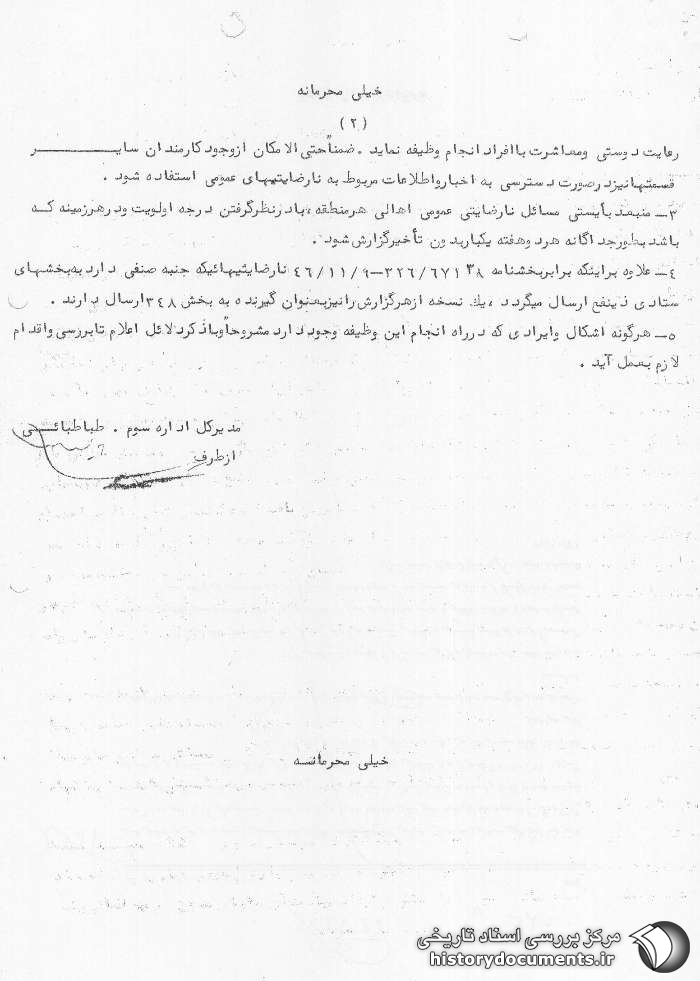 خیلی محرمانه
(۲)
رعایت دوستی ومعاشرت باافراد انجام وظیفه نماید . ضمناً حتی الامکان ازوجود کارمندان سایـــــــر
قسمتهانیزدرصورت دسترسی به اخبارواطلاعات مربوط به نارضایتیهای عمومی استفاده شود .
۳ــ منبعد بأیستی مسائل نارضایتی عمومی اهالی هرمنطقه ،بادرنظرگرفتن درجه اولویت ودرهرزمینه کــه
باشد بطورجداگانه هردوهفته یکباربدون تأخیرگزارش شود .
٤ــ علاوه براینکه برابربخشنامه ۳۲٦/٦۷۱۳۸ــ٤٦/۱۱/۹ نارضایتیهائیکه جنبه صنفی دارد به بخشهای
ستادی ذینفع ارسال میگردد ، یك نسخه ازهرگزارش رانیزبعنوان گیرنده به بخش ۳٤۸ ارسال دارند .
٥ــ هرگونه اشکال وایرادی که درراه انجام این وظیفه وجود دارد مشروحاً وباذکردلائل اعلام تابررسی واقدام
لازم بعمل آید .
مدیرکل اداره سوم . طباطبائـــی
ازطرف
خیلی محرمانــه
مرکز بررسی اسناد تاریخی
historydocuments.ir